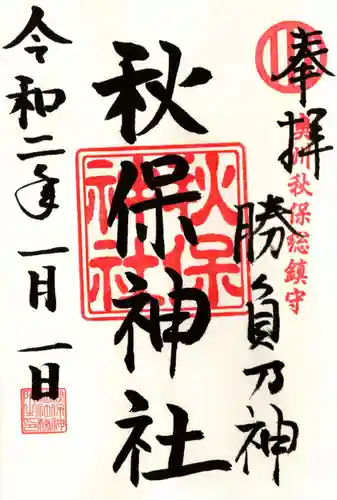 奉拝
奥州秋保総鎮守
勝負乃神
秋保神社
秋保
神社
令和二年一月一日